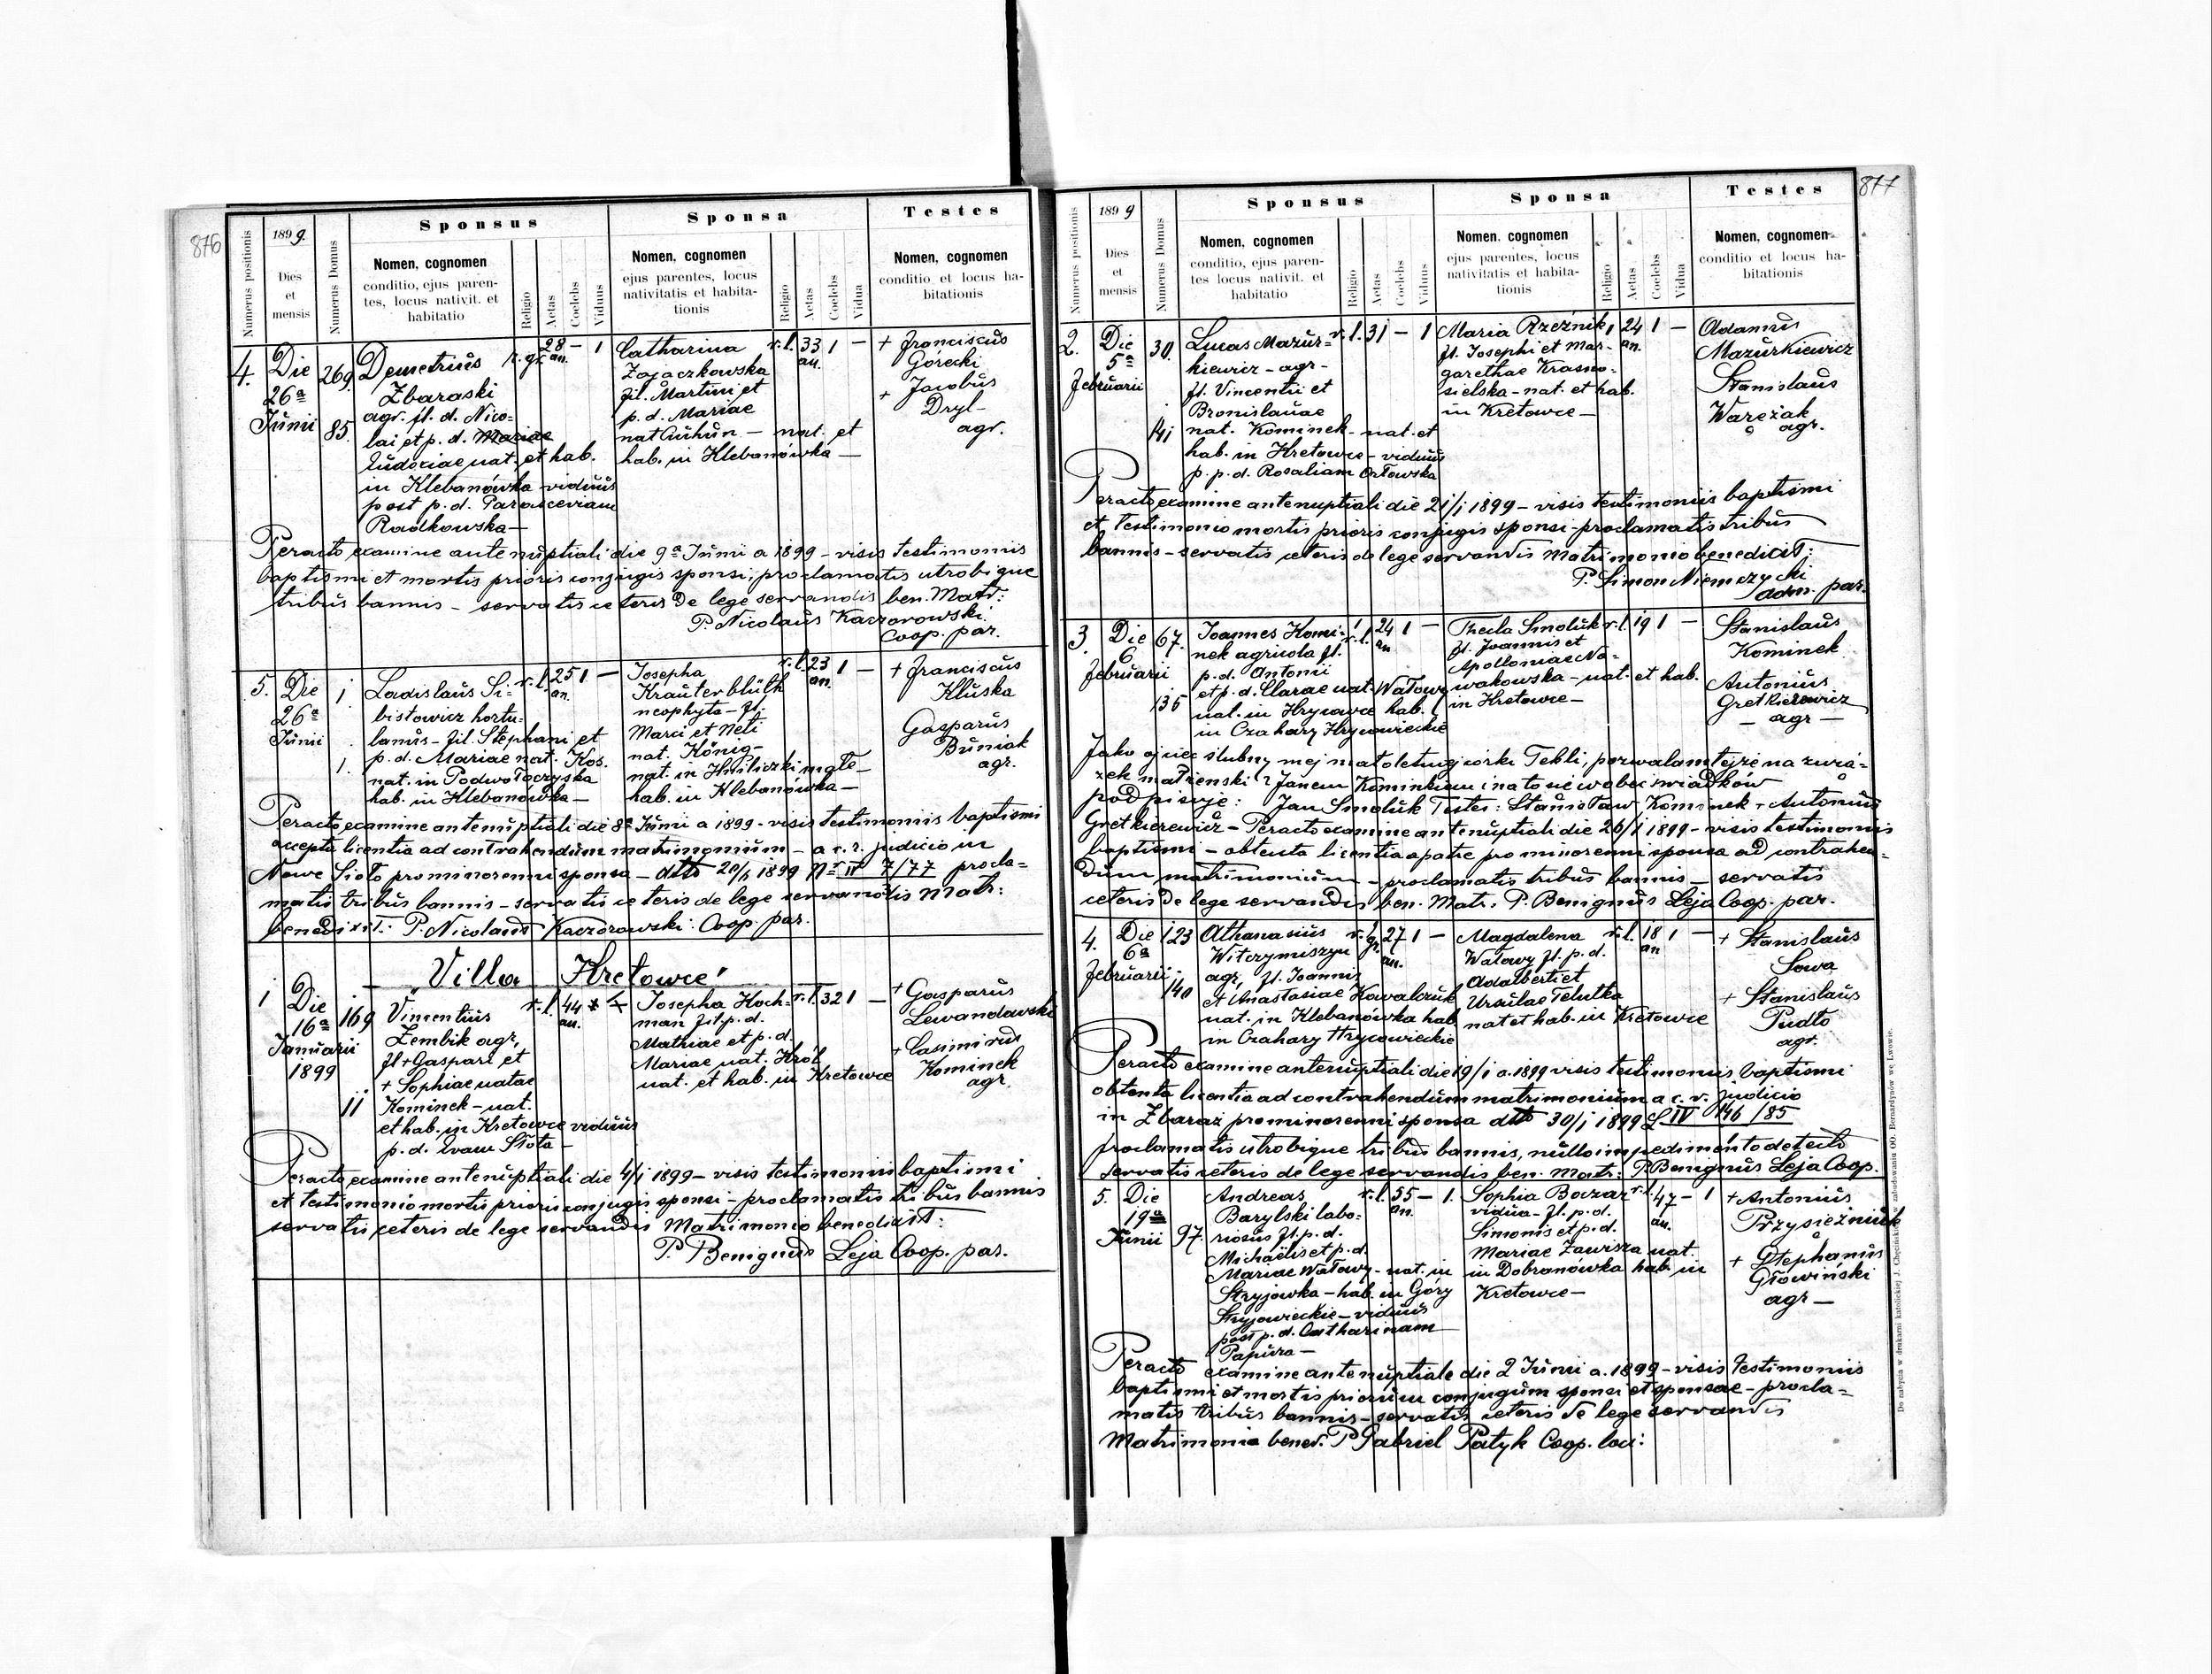 876
Numerus positionis
189 9.
Dies
et
mensis
Numerus Domus
Sponsus
Nomen, cognomen
conditio, ejus paren-
tes, locus nativit. et
habitatio
Religio
Aetas
Coelebs
Viduus
Sponsa
Nomen, cognomen
ejus parentes, locus
nativitatis et habita-
tionis
Religio
Aetas
Coelebs
Vidua
Testes
Nomen, cognomen
conditio et locus ha-
bitationis
4.
Die
26a
Junii
269
85.
Demetrius
Zbaraski
agr. fl. d. Nico-
lai et p. d. Mariae
Eudociae nat. et hab.
in Klebanówka viduus
post p. d. Parasceviam
Radkowska —
r. gr.
28 an.
—
1
Catharina
Zajaczkowska
fil. Martini et
p. d. Mariae
nat. — nat. et
hab. in Klebanówka —
r. l.
33 an.
1
—
+ Franciscus
Górecki
+ Jacobus
Dryl —
agr.
Peracto examine antenuptiali die 9a Junii a 1899 – visis testimoniis
baptismi et mortis prioris conjugis sponsi, proclamatis utrobique
tribus bannis – servatis ceteris de lege servandis ben. Matr:
P. Nicolaus Kaczorowski
Coop. par.
5.
Die
26a
Junii
1
1.
Ladislaus Si-
bistowicz hortu-
lanus – fil. Stephani et
p. d. Mariae nat. Kos.
nat. in Podwołoczyska
hab. in Klebanówka —
r. l.
25 an.
1
—
Josepha
Krauterblüth
neophyta – fl.
Marci et Neti
nat. König –
nat. in Hniliczki małe —
hab. in Klebanówka —
r. l.
23 an.
1
—
+ Franciscus
Kluska
Gasparus
Buniak
agr.
Peracto examine antenuptiali die 8a Junii a 1899 – visis testimoniis baptismi
accepta licentia ad contrahendum matrimonium – a c. r. judicio in
Nowe Sioło pro minorenni sponsa – dtto 20/5 1899 Nr IV 7/77 procla-
matis tribus bannis – servatis ceteris de lege servandis Matr:
benedixit: P. Nicolaus Kaczorowski Coop. par.
Villa Kretowce
1
Die
16a
Januarii
1899
169
11
Vincentius
Zembik agr,
fl + Gaspari et
+ Sophiae natae
Kominek – nat.
et hab. in Kretowce viduus
p. d. Evam Słota –
r. l.
44 an.
Josepha Hoch-
man fil p. d.
Mathiae et p. d.
Mariae nat. Król
nat. et hab. in Kretowce
r. l.
32
1
—
+ Gasparus
Lewandowski
+ Casimirus
Kominek
agr.
Peracto examine antenuptiali die 4/1 1899 – visis testimoniis baptismi
et testimonio mortis prioris conjugis sponsi – proclamatis tribus bannis
servatis ceteris de lege servandis Matrimonio benedixit:
P. Benignus Leja Coop. par.
877
Numerus positionis
189 9
Dies
et
mensis
Numerus Domus
Sponsus
Nomen, cognomen
conditio, ejus paren-
tes, locus nativit. et
habitatio
Religio
Aetas
Coelebs
Viduus
Sponsa
Nomen, cognomen
ejus parentes, locus
nativitatis et habita-
tionis
Religio
Aetas
Coelebs
Vidua
Testes
Nomen, cognomen
conditio et locus ha-
bitationis
2.
Die
5a
Februarii
30.
141
Lucas Mazur-
kiewicz – agr –
fl. Vincentii et
Bronislauae
nat. Kominek – nat. et
hab. in Kretowce – viduus
p. p. d. Rosaliam Orłowska
r. l.
31
—
1
Maria Rzeźnik
fl. Josephi et Mar-
garethae Krasno-
sielska – nat. et hab.
in Kretowce —
24 an.
1
—
Adamus
Mazurkiewicz
Stanislaus
Waręzak
agr.
Peracto examine antenuptiali die 21/1 1899 – visis testimoniis baptismi
et testimonio mortis prioris conjugis sponsi – proclamatis tribus
bannis – servatis ceteris de lege servandis Matrimonio benedixit:
P. Simon Niemczycki
adm. par.
3.
Die
6
Februarii
67.
136
Joannes Komi-
nek agricola fl.
p. d. Antonii
et p. d. Clarae nat. Wałowy
nat. in Hrycowce hab.
in Czahary Hrycowieckie
r. l.
24 an
1
—
Thecla Smoluk
fl. Joannis et
Apolloniae No-
wakowska – nat. et hab.
in Kretowce —
r. l.
19
1
—
Stanislaus
Kominek
Antonius
Gretkierewicz
— agr —
Jako ojciec ślubny mej małoletniej córki Tekli, pozwalam tejże na zwią-
zek małżenski z Janem Kominkiem i na to się wobec świadków
podpisuję: Jan Smoluk Testes: Stanisław Kominek + Antonius
Gretkierewicz – Peracto examine antenuptiali die 26/1 1899 – visis testimoniis
baptismi – obtenta licentia a patre pro minorenni sponsa ad contrahen-
dum matrimonium – proclamatis tribus bannis – servatis
ceteris de lege servandis ben. Matr. P. Benignus Leja Coop. par.
4.
Die
6a
Februarii
123
140
Athanasius
Witczymiszyn
agr, fl. Joannis
et Anastasiae Kowalczuk
nat. in Klebanówka hab
in Czahary Hrycowieckie
r. gr.
27 an.
1
—
Magdalena
Wałowy fl. p. d.
Adalberti et
Ursulae Telutka
nat et hab. in Kretowce
r. l.
18 an
1
—
+ Stanislaus
Sowa
+ Stanislaus
Pudło
agr.
Peracto examine antenuptiali die 19/1 a. 1899 visis testimoniis baptismi
obtenta licentia ad contrahendum matrimonium a c. r. judicio
in Zbaraż pro minorenni sponsa dtto 30/1 1899 L IV 146/85
proclamatis utrobique tribus bannis, nullo impedimento detecto
servatis ceteris de lege servandis ben. Matr: P. Benignus Leja Coop.
5.
Die
19a
Junii
97.
Andreas
Barylski labo-
riosus fl. p. d.
Michaëlis et p. d.
Mariae Wałowy – nat. in
Stryjowka – hab. in Góry
Stryjowieckie – viduus
post p. d. Catharinam
Papura —
r. l.
55 an.
—
1.
Sophia Boczar
vidua – fl. p. d.
Simonis et p. d.
Mariae Zawisza nat.
in Dobranówka hab. in
Kretowce —
r. l.
47 an.
—
1
+ Antonius
Przysiężniuk
+ Stephanus
Głowiński
agr —
Peracto examine antenuptiale die 2 Junii a. 1899 – visis testimoniis
baptismi et mortis priorum conjugum sponsi et sponsae – procla-
matis tribus bannis – servatis ceteris de lege servandis
Matrimonio bened. P Gabriel Patyk Coop. loci:
Do nabycia w drukarni katolickiej J. Chęcińskiego w zabudowaniu OO. Bernardynów we Lwowie.